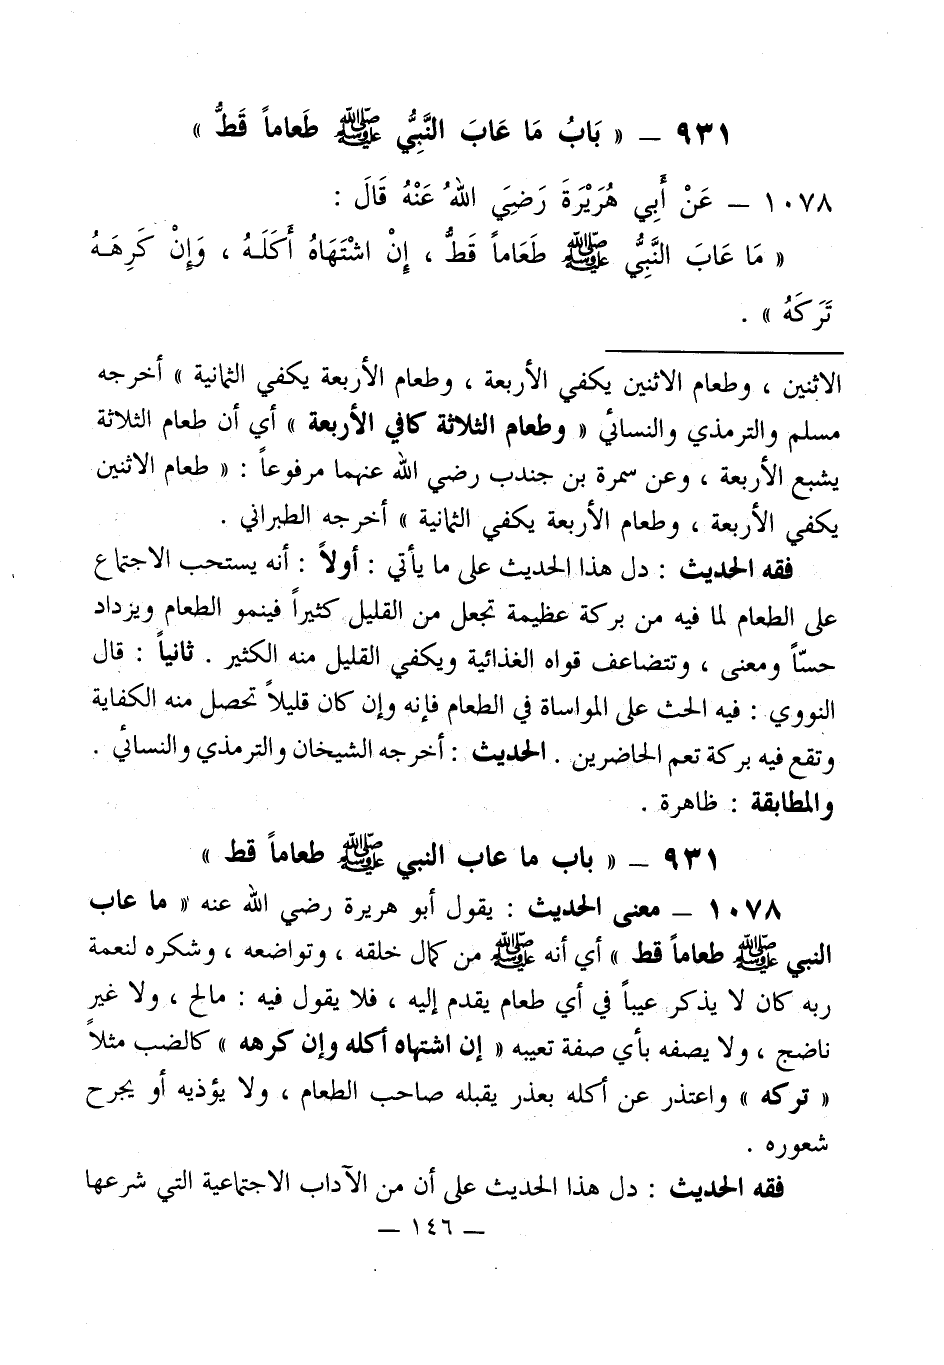 ٩٣١ – « بَابُ مَا عَابَ النَّبِيُّ ﷺ طَعَاماً قَطُّ »
١٠٧٨ – عَنْ أَبِي هُرَيْرَةَ رَضِيَ اللهُ عَنْهُ قَالَ :
« مَا عَابَ النَّبِيُّ ﷺ طَعَاماً قَطُّ ، إِنْ اشْتَهَاهُ أَكَلَهُ ، وَإِنْ كَرِهَهُ
تَرَكَهُ » .
الاثنين ، وطعام الاثنين يكفي الأربعة ، وطعام الأربعة يكفي الثمانية » أخرجه
مسلم والترمذي والنسائي « وطعام الثلاثة كافي الأربعة » أي أن طعام الثلاثة
يشبع الأربعة ، وعن سمرة بن جندب رضي الله عنهما مرفوعاً : « طعام الاثنين
يكفي الأربعة ، وطعام الأربعة يكفي الثمانية » أخرجه الطبراني .
فقه الحديث : دل هذا الحديث على ما يأتي : أولاً : أنه يستحب الاجتماع
على الطعام لما فيه من بركة عظيمة تجعل من القليل كثيراً فينمو الطعام ويزداد
حسّاً ومعنى ، وتتضاعف قواه الغذائية ويكفي القليل منه الكثير . ثانياً : قال
النووي : فيه الحث على المواساة في الطعام فإنه وإن كان قليلاً تحصل منه الكفاية
وتقع فيه بركة تعم الحاضرين . الحديث : أخرجه الشيخان والترمذي والنسائي .
والمطابقة : ظاهرة .
٩٣١ – « باب ما عاب النبي ﷺ طعاماً قط »
١٠٧٨ – معنى الحديث : يقول أبو هريرة رضي الله عنه « ما عاب
النبي ﷺ طعاماً قط » أي أنه ﷺ من كمال خلقه ، وتواضعه ، وشكره لنعمة
ربه كان لا يذكر عيباً في أي طعام يقدم إليه ، فلا يقول فيه : مالح ، ولا غير
ناضج ، ولا يصفه بأي صفة تعيبه « إن اشتهاه أكله وإن كرهه » كالضب مثلاً
« تركه » واعتذر عن أكله بعذر يقبله صاحب الطعام ، ولا يؤذيه أو يجرح
شعوره .
فقه الحديث : دل هذا الحديث على أن من الآداب الاجتماعية التي شرعها
– ١٤٦ –